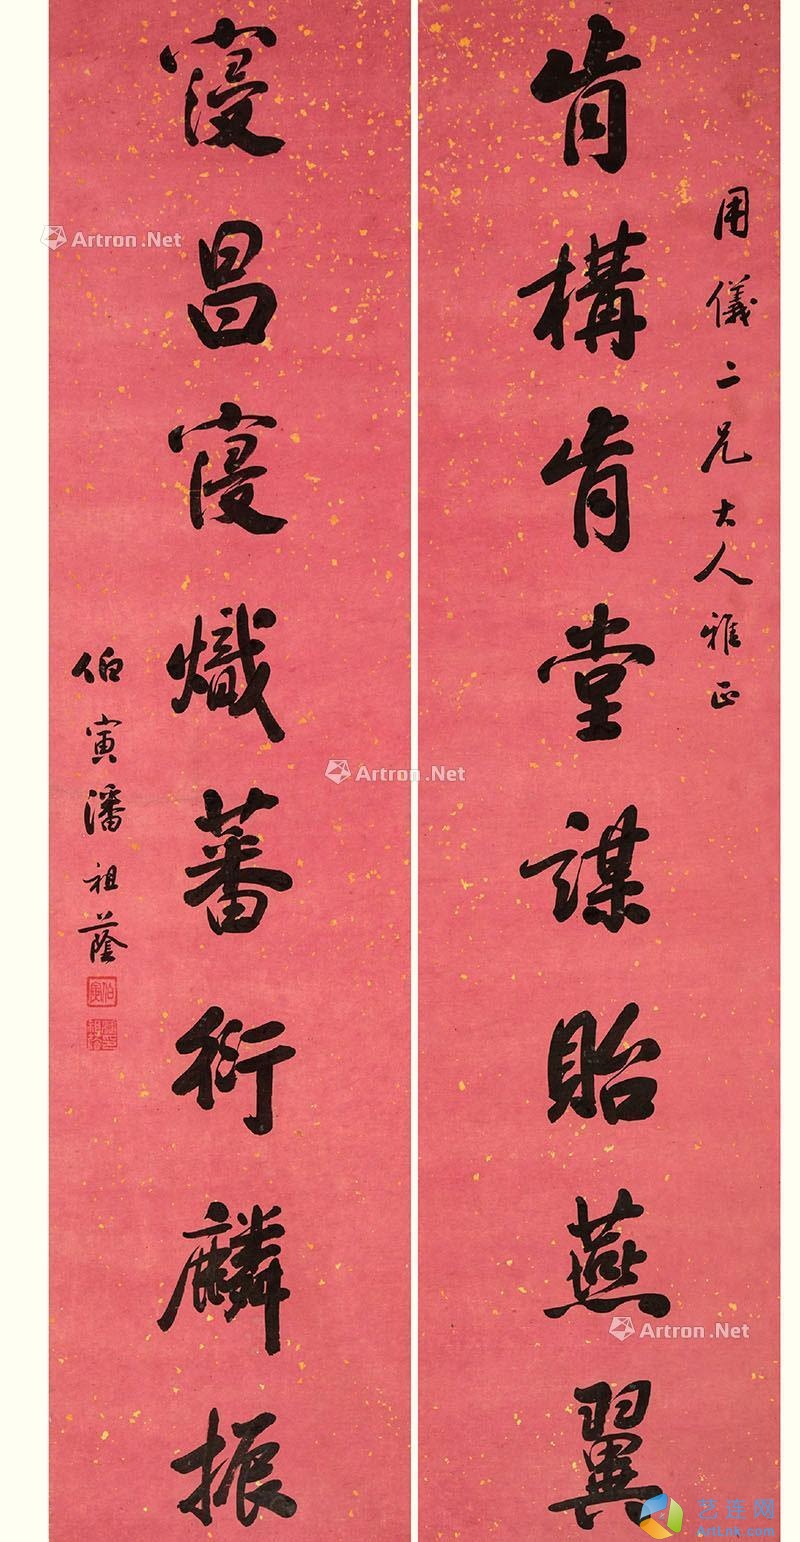 用儀二兄大人雅正
肯構肯堂謀貽燕翼
寖昌寖熾蕃衍麟振
伯寅潘祖蔭
伯寅
Artron.Net
Artron.Net
Artron.Net
艺连网
ArtLnk.com